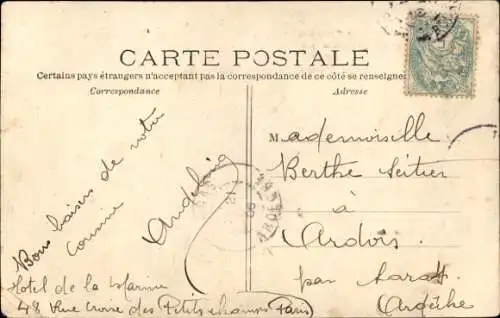 CARTE POSTALE
Certains pays étrangers n'acceptant pas la correspondance de ce côté se renseigner
Correspondance
Adresse
Bons baisers de votre
cousine
Mademoiselle
Berthe
à
Ardoix
par Sarras
Ardèche
Hôtel de la Marine
48 Rue Croix des Petits champs Paris